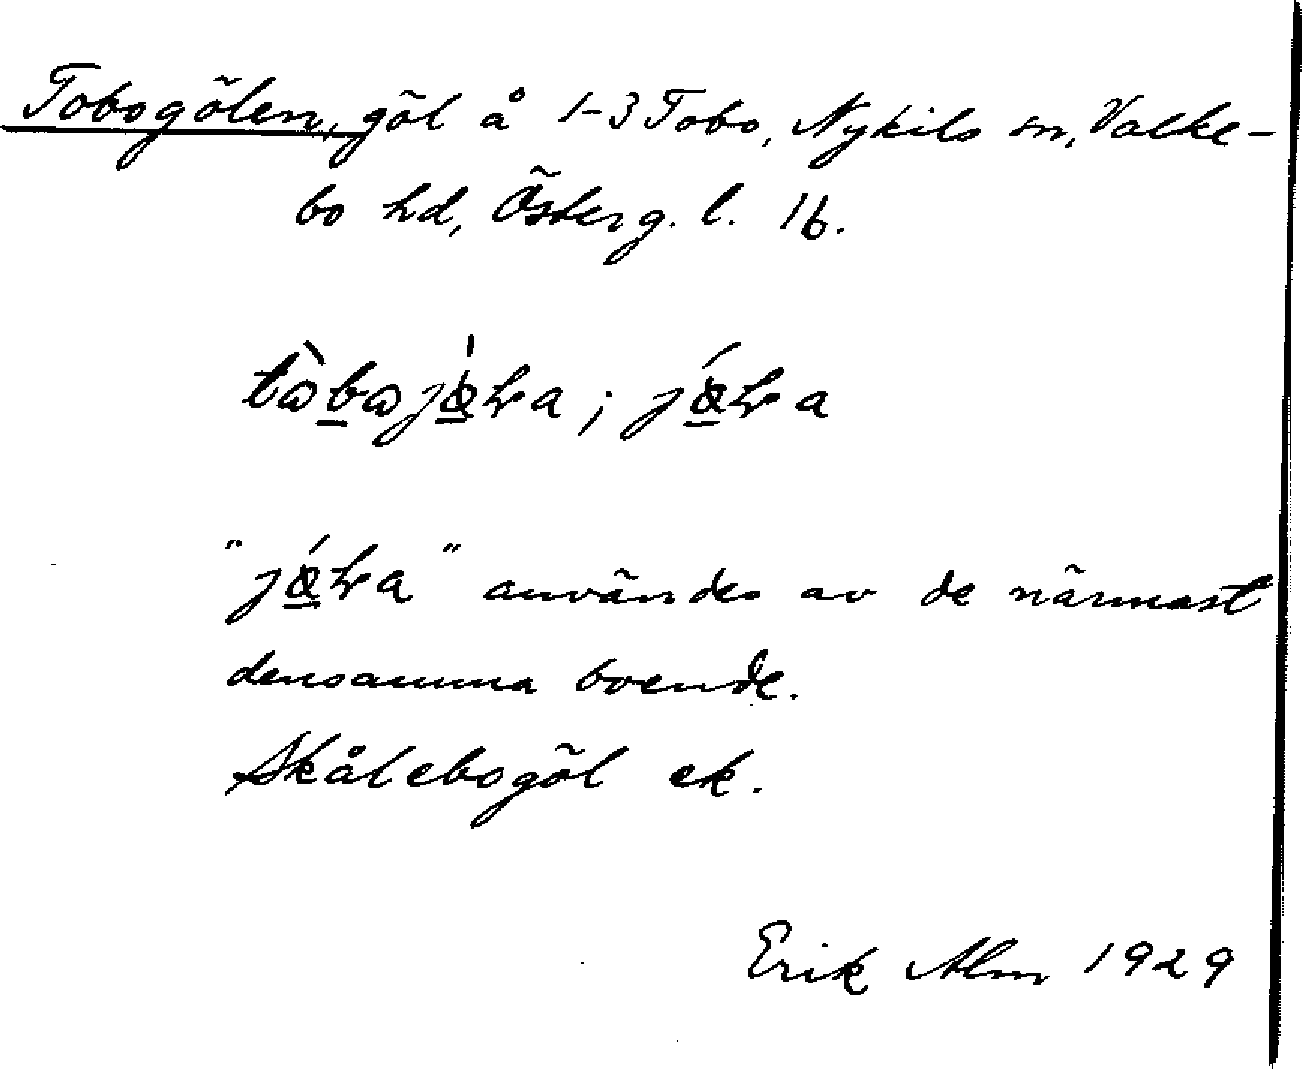 Tobogölen, göl å 1-3 Tobo, Nykils sn, Valke-
bo hd, Österg. l. 16.
"    " användes av de närmast
densamma boende.
Skålebogöl ek.
Erik Alm 1929